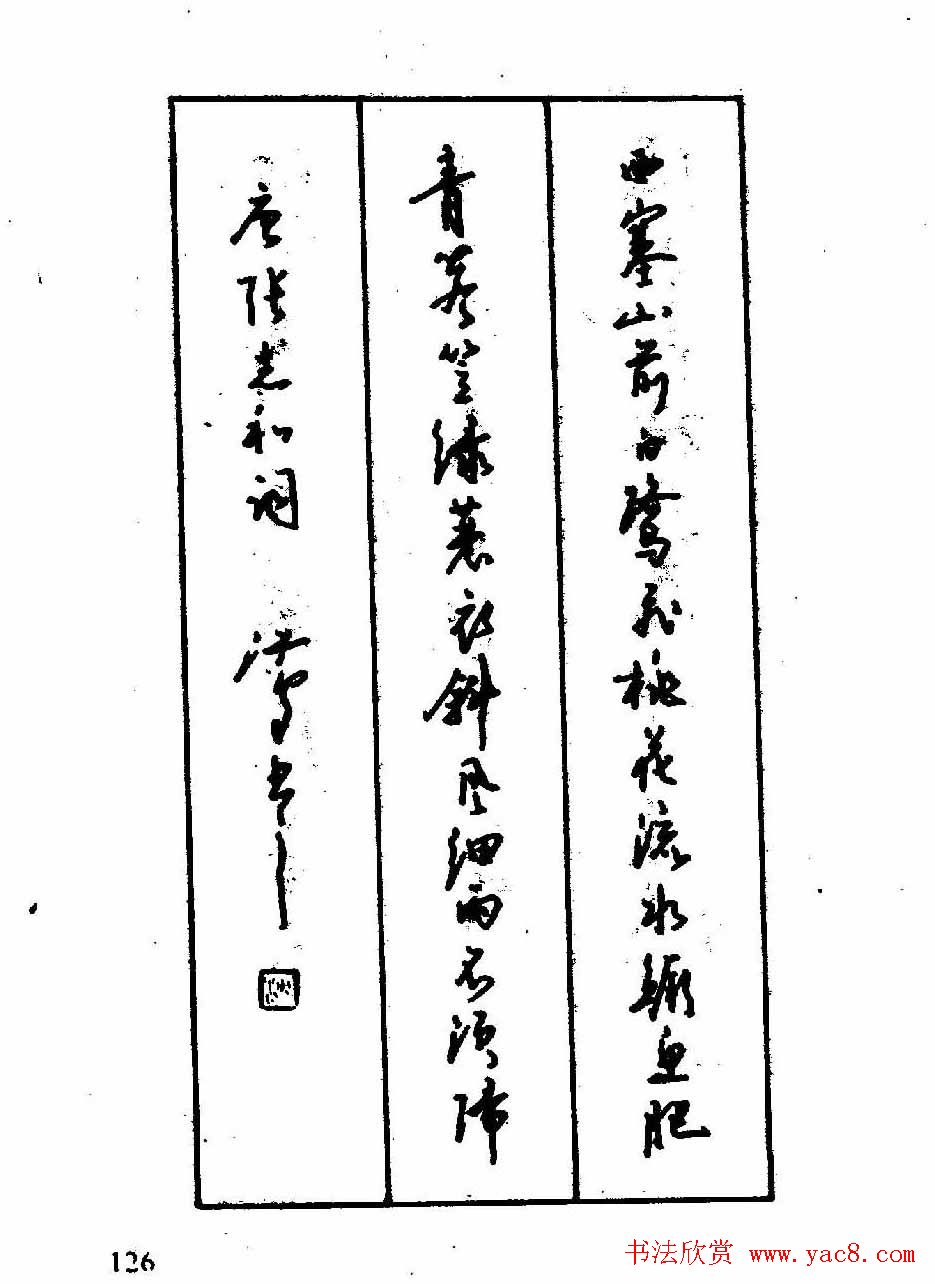 西塞山前白鹭飞桃花流水鳜鱼肥
青箬笠绿蓑衣斜风细雨不须归
唐张志和词 书
126
书法欣赏 www.yac8.com